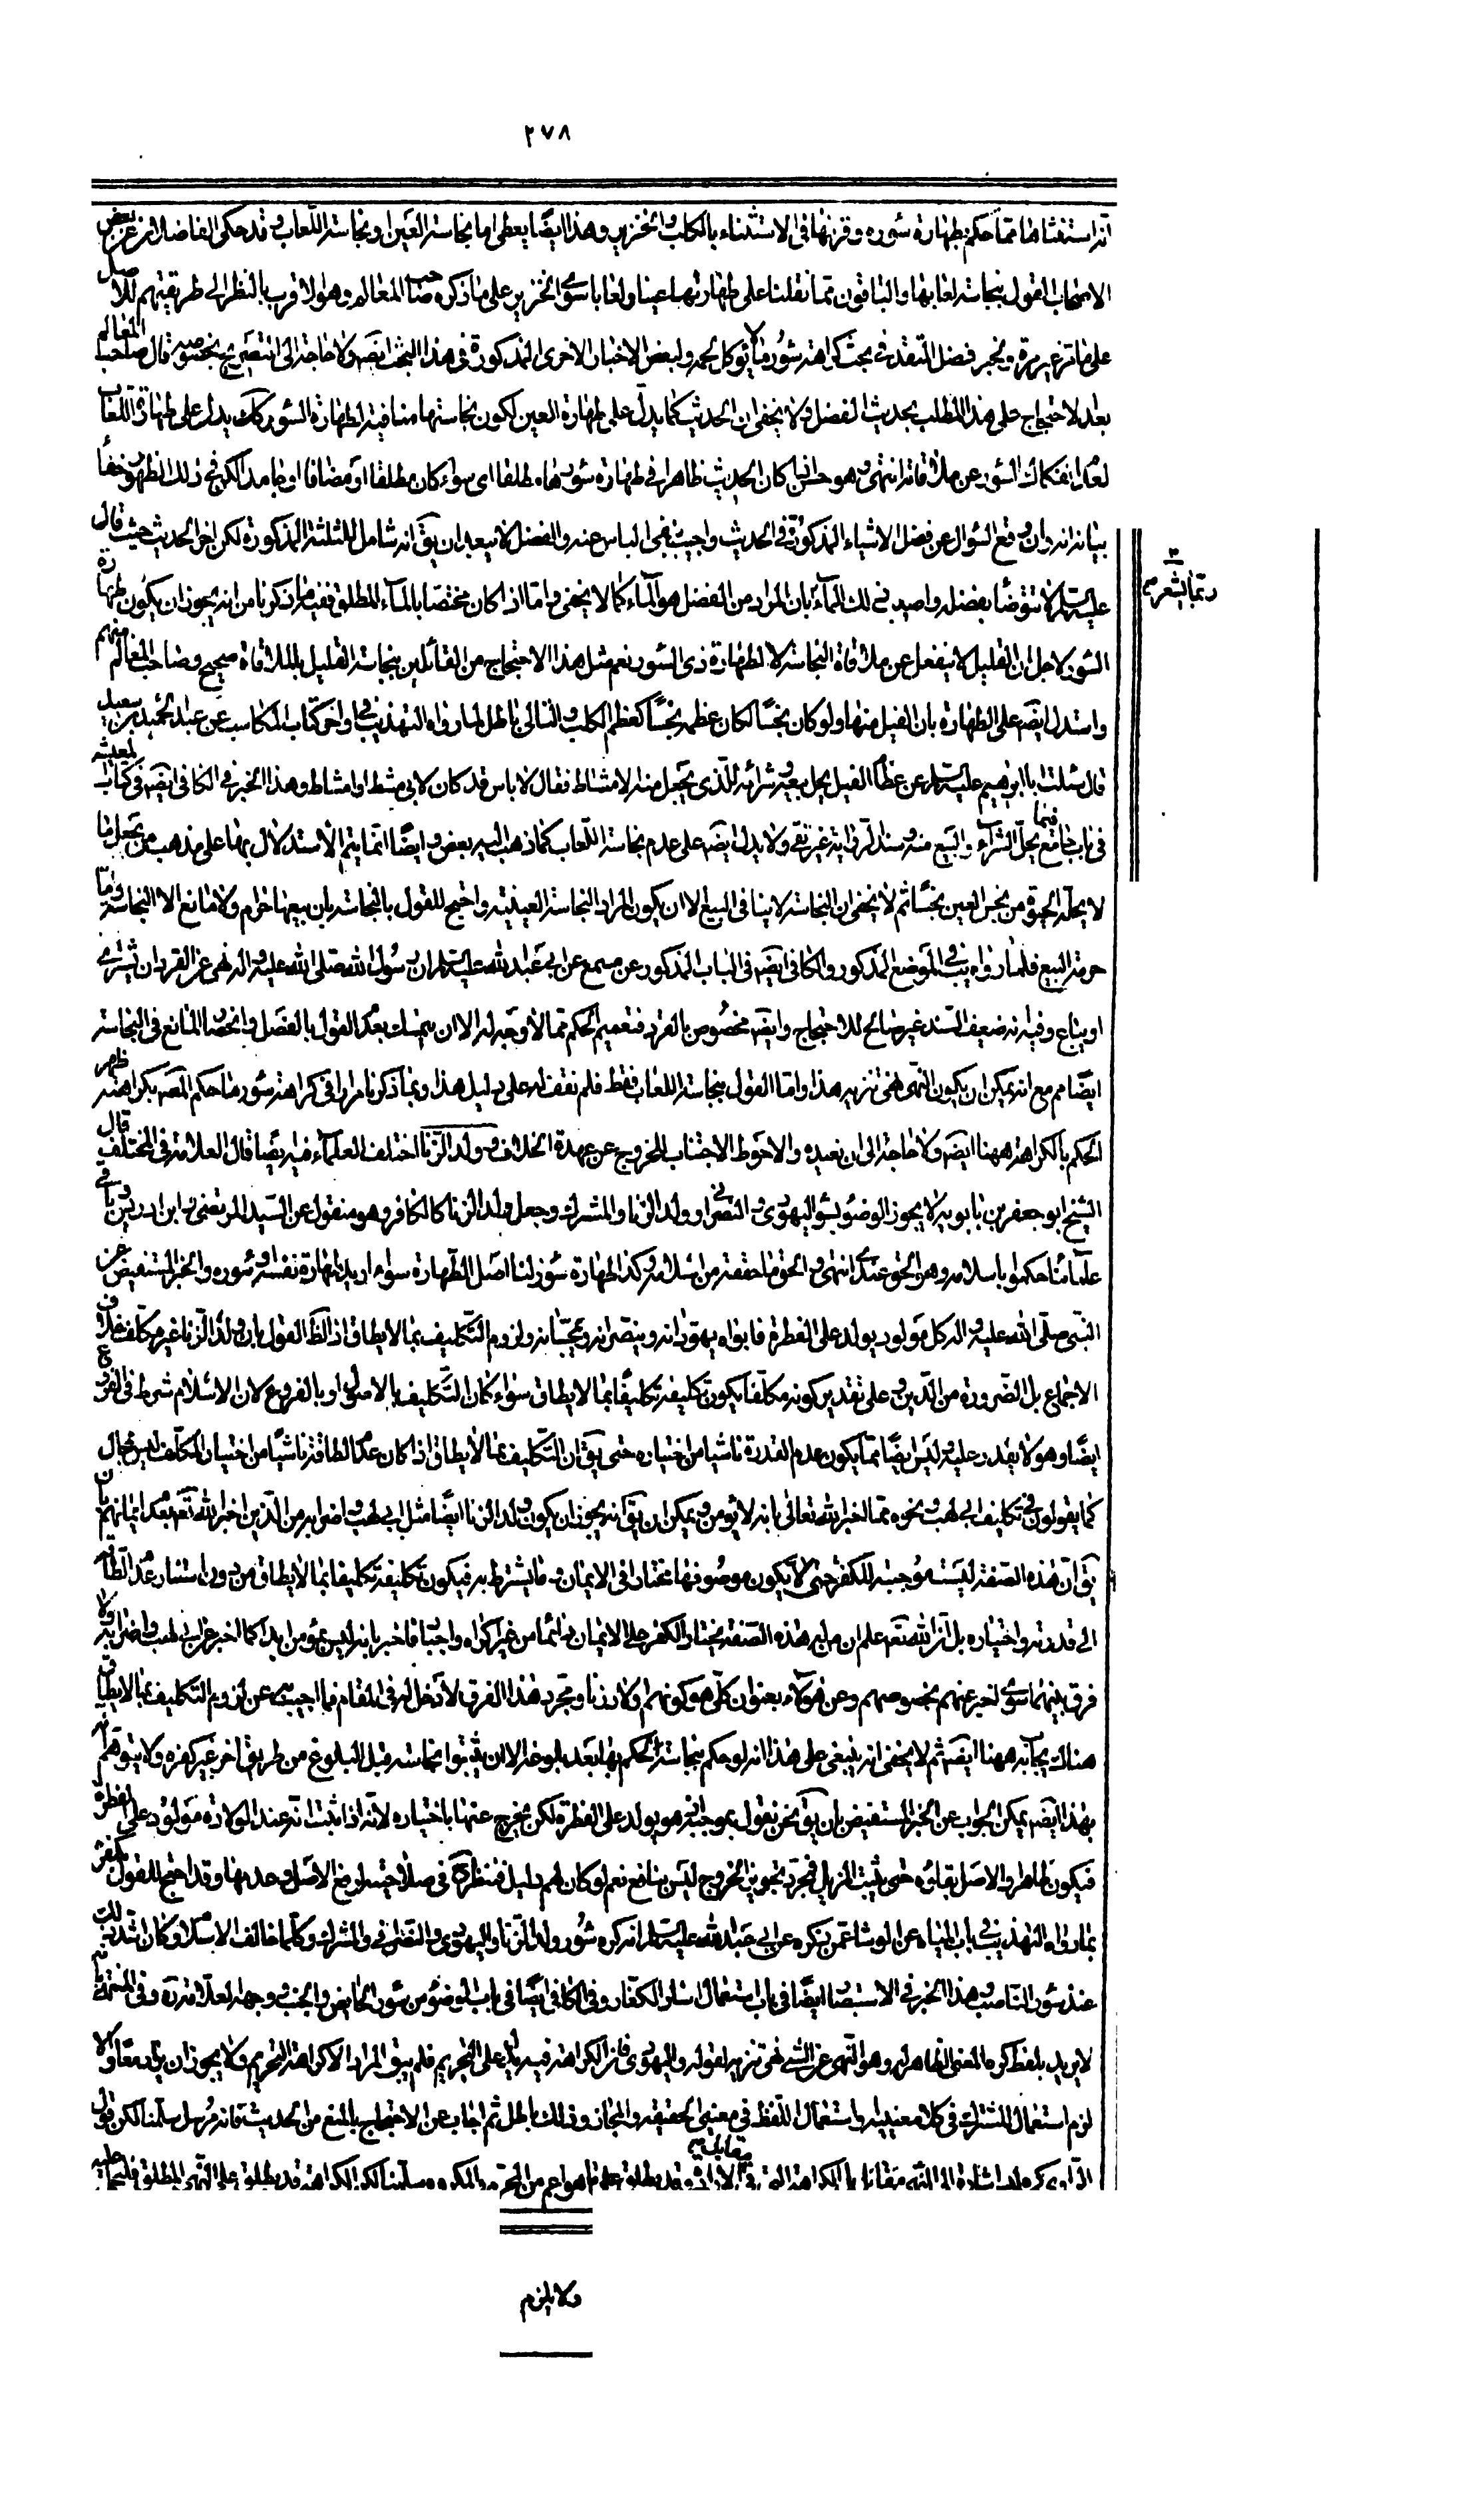 ٢٧٨
انه استثناها مما حكم بطهارة سؤره وقرنها فى الاستثناء بالكلب والخنزير وهذا ايضًا يعطى اما نجاسة العين او نجاسة اللعاب وقد حكى الفاضلان عن بعض
الاصحاب القول بنجاسة لعابها والباقون ممن نقلنا على طهارتها عينا ولعابا سوى الخنزير على ما ذكره صاحب المعالم وهو الاقرب بالنظر الى طريقتهم للاصل
على ما مر غير مرة ولخبر فضل المتقدم فى بحث كراهة سؤر ما لا يؤكل لحمه ولبعض الاخبار الاخرى المذكورة فى هذا البحث ايضا ولا حاجة الى التصريح بخصوصه قال صاحب المعالم
بعد الاحتجاج على هذا المطلب بحديث الفضل ولا يخفى ان الحديث كما يدل على طهارة العين لكون نجاستها منافية لطهارة السؤر كك يدل على طهارة اللعاب
لعدم انفكاك السؤر عن ملاقاته انتهى وهو حسن ان كان الحديث ظاهرا فى طهارة سؤرها مطلقا اى سواء كان مطلقا او مضافا او جامدا لكن فى ذلك الظهور خفأ
بيانه انه وان وقع السؤال عن فضل الاشياء المذكورة فى الحديث واجيب بنفى الباس عنه والفضل لا يبعد ان يق انه شامل للثلثة المذكورة لكن اخر الحديث حيث قال
عليه السلم لا تتوضأ بفضله واصبب ذلك الماء ربما يشعر بان المراد من الفضل هو الماء كما لا يخفى واما اذا كان مختصا بالماء المطلق ففيه ما ذكرنا من انه يجوز ان يكون طهارة
السؤر لاجل ان القليل لا ينفعل عن ملاقاة النجاسة لا لطهارة ذى السؤر نعم مثل هذا الاحتجاج من القائلين بنجاسة القليل بالملاقاة صحيح وصاحب المعالم منهم
واستدل ايضا على الطهارة بان الفيل منها ولو كان نجسًا لكان عظمه نجسًا كعظم الكلب والتالى باطل لما رواه التهذيب فى اواخر كتاب المكاسب عن عبد الحميد بن سعيد
قال سئلت ابا ابرهيم عليه السلم عن عظام الفيل يحل بيعه او شرائه الذى يجعل منه الامشاط فقال لا باس قد كان لابى مشط او امشاط وهذا الخبر فى الكافى ايضا فى كتاب المعيشة
فى باب جامع فيما يحل الشراء والبيع منه وسند الرواية غير نقى ولا يدل ايضا على عدم نجاسة اللعاب كما ذهب اليه بعض وايضًا انما يتم الاستدلال بها على مذهب من يجعل ما
لا يحله الحيوة من نجس العين نجسًا ثم لا يخفى ان النجاسة لا ينافى البيع الا ان يكون المراد النجاسة العينية واحتج للقول بالنجاسة بان بيعها حرام ولا مانع الا النجاسة واما
حرمة البيع فلما رواه يب فى الموضع المذكور والكافى ايضا فى الباب المذكور عن مسمع عن ابى عبد الله عليه السلم ان رسول الله صلى الله عليه واله نهى عن القرد ان يشترى
او يباع وفيه انه ضعيف السند غير صالح للاحتجاج وايضا مخصوص بالقرد فتعميم الحكم مما لا وجه له الا ان يتمسك بعدم القول بالفصل وانحصار المانع فى النجاسة
ايضًا مم مع انه يمكن ان يكون النهى نهى تنزيه هذا واما القول بنجاسة اللعاب فقط فلم نقف له على دليل هذا وبما ذكرنا مرارا فى كراهة سؤر ما حكم المص بكراهته ظهر
الحكم بالكراهة ههنا ايضا ولا حاجة الى ان نعيده والاحوط الاجتناب للخروج عن عهدة الخلاف وولد الزنا اختلف العلماء فيه ايضًا قال العلامة فى المختلف قال
الشيخ ابو جعفر بن بابويه لا يجوز الوضوء بسؤر اليهودى والنصرانى وولد الزنا والمشرك وجعل ولد الزنا كالكافر وهو منقول عن السيد المرتضى وابن ادريس وباقى
علمائنا حكموا باسلامه وهو الحق عندى انتهى والحق ما حققه من اسلامه وكذا طهارة سؤره لنا اصل الطهارة سواء اريد طهارة نفسه او سؤره والخبر المستفيض عن
النبى صلى الله عليه واله كل مولود يولد على الفطرة فابواه يهودانه وينصرانه ويمجسانه ولزوم التكليف بما لا يطاق اذ الظ القول بان ولد الزنا غير مكلف خلاف
الاجماع بل الضرورة من الدين وعلى تقدير كونه مكلفا يكون تكليفه تكليفًا بما لا يطاق سواء كان التكليف بالاصول او بالفروع لان الاسلام شرط فى الفروع
ايضًا وهو لا يقدر عليه وليس ايضًا مما يكون عدم القدرة ناشيا من اختياره حتى يق ان التكليف بما لا يطاق اذا كان عدم الطاقة ناشيًا من اختيار المكلف ليس بمحال
كما يقولون فى تكليف ابى لهب ونحوه مما اخبر الله تعالى بانه لا يؤمن ويمكن ان يق انه يجوز ان يكون ولد الزنا ايضًا مثل ابى لهب واضرابه من الذين اخبر الله تعم بعدم ايمانهم بان
يق ان هذه الصفة ليست موجبة للكفر حتى لا يكون موصوفها مختارا فى الايمان وما يشترط به فيكون تكليفه تكليفا بما لا يطاق من دون استناد عدم الطاقة
الى قدرته واختياره بل انه الله تعم علم ان من له هذه الصفة يختار الكفر على الايمان دائمًا من غير اكراه واجبار فاخبر بانه ليس بمؤمن ابدا كما اخبر عن ابى لهب واضرابه ولا
فرق بينهما سوى انه اخبر عنهم بخصوصهم وعن هؤلاء بعنوان كلى هو كونهم اولاد زنا ومجرد هذا الفرق لا دخل له فى المقام فما اجيب به عن لزوم التكليف بما لا يطاق
هناك يجاب به ههنا ايضا ثم لا يخفى انه ينبغى على هذا انه لو حكم بنجاسته لحكم بها بعد بلوغه الا ان يثبتوا نجاسته قبل البلوغ من طريق اخر غير كفره ولا يتوهم انه
بهذا ايضا يمكن الجواب عن الخبر المستفيض بان يق نحن نقول بموجبه وهو يولد على الفطرة لكن يخرج عنها باختياره لانه اذا ثبت انه عند الولادة مولود على الفطرة
فيكون طاهرا والاصل بقاؤه حتى يثبت المزيل فمجرد تجويز الخروج ليس بنافع نعم لو كان لهم دليل فننظر فى صلاحيته لرفع الاصل وعدمها وقد احتج للقول بكفره
بما رواه التهذيب فى باب المياه عن الوشا عمن ذكره عن ابى عبد الله عليه السلم انه كره سؤر ولد الزنا واليهودى والنصرانى والمشرك وكل ما خالف الاسلام وكان اشد ذلك
عنده سؤر الناصب وهذا الخبر فى الاستبصار ايضًا فى باب استعمال اسئار الكفار وفى الكافى ايضًا فى باب الوضوء من سؤر الحايض والجنب ووجهه العلامة ره فى المنتهى بانه
لا يريد بلفظ كره المعنى الظاهر له وهو النهى عن الشئ نهى تنزيه لقوله واليهودى فان الكراهة فيه يدل على التحريم فلم يبق المراد الا كراهة التحريم ولا يجوز ان يراد معًا والا
لزم استعمال المشترك فى كلا معنييه او استعمال اللفظ فى معنيى الحقيقة والمجاز وذلك باطل ثم اجاب عن الاحتجاج بالمنع من الحديث فانه مرسل سلمنا لكن قول
الراوى كره ليس اشارة الى النهى مقابل الكراهة التى فى مقابل الارادة وقد يطلق على ما هو اعم من المحرم والمكروه سلمنا لكن الكراهة قد يطلق على النهى المطلق فليحمل عليه
ربما يشعر
ولا يلزم